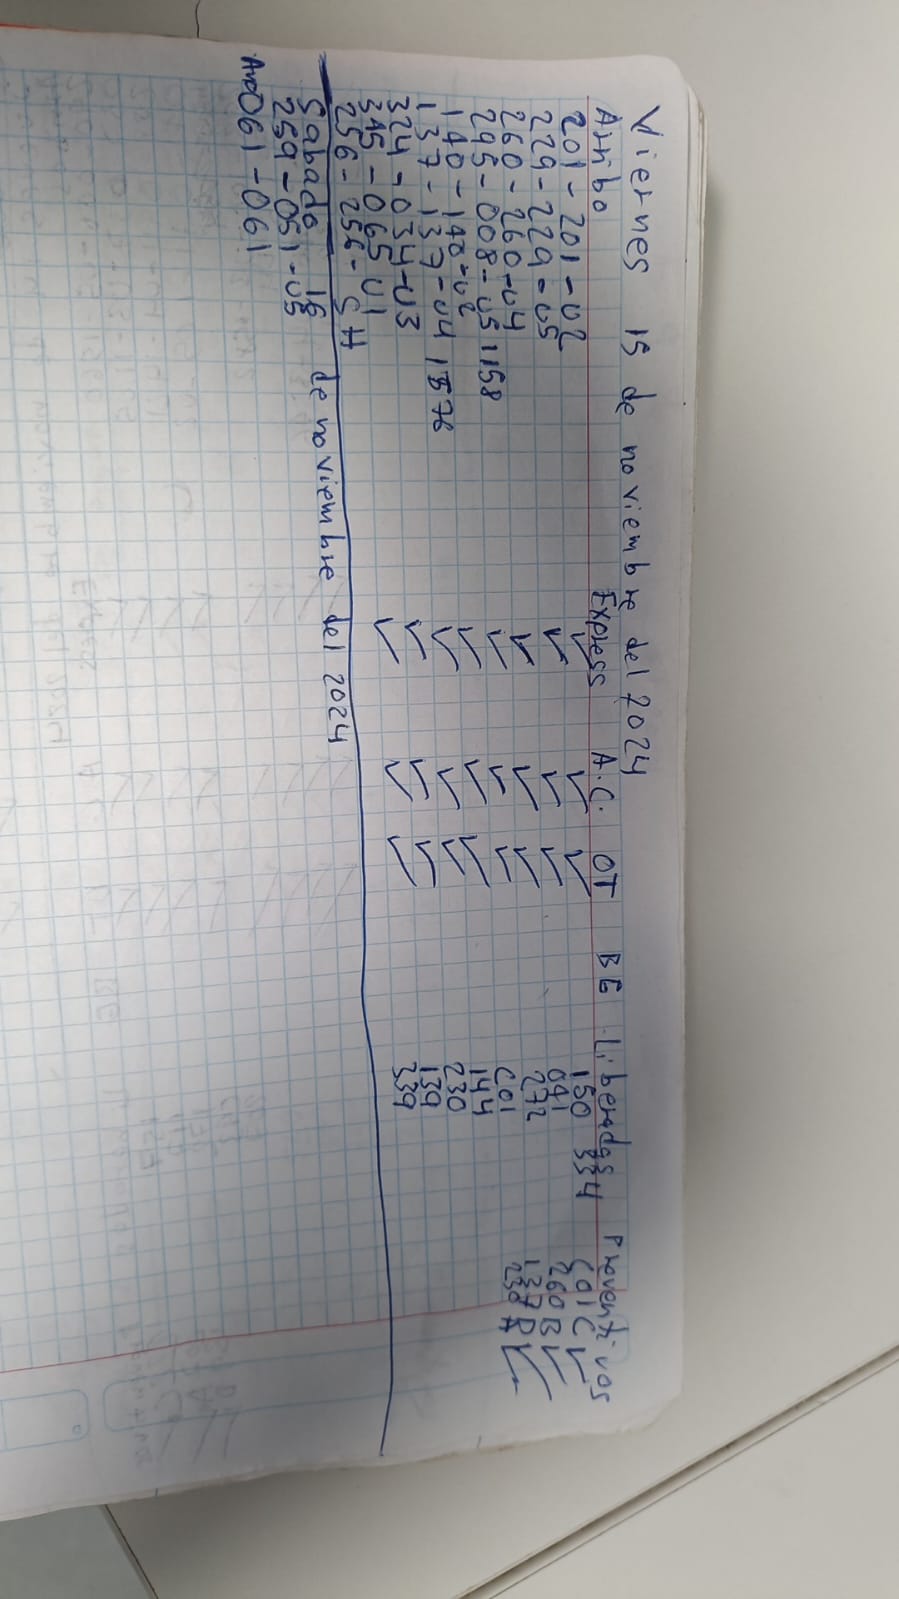 Viernes 15 de noviembre del 2024
Arribo Express A.C. OT BE Liberadas Preventivos
201-201-U2 ✓ ✓ ✓ 150 334 C01 C ✓
229-229-U5 ✓ ✓ ✓ 041 260 B ✓
260-260-U4 ✓ ✓ ✓ 272 137 A ✓
295-008-U5 1158 ✓ ✓ ✓ C01 230 A ✓
140-140-U2 ✓ ✓ ✓ 144
137-137-U4 1576 ✓ ✓ ✓ 230
324-034-U3 ✓ ✓ ✓ 139
345-065 U1 ✓ ✓ ✓ 339
256-256-SH
Sabado 16 de noviembre del 2024
259-051-U5
061-061